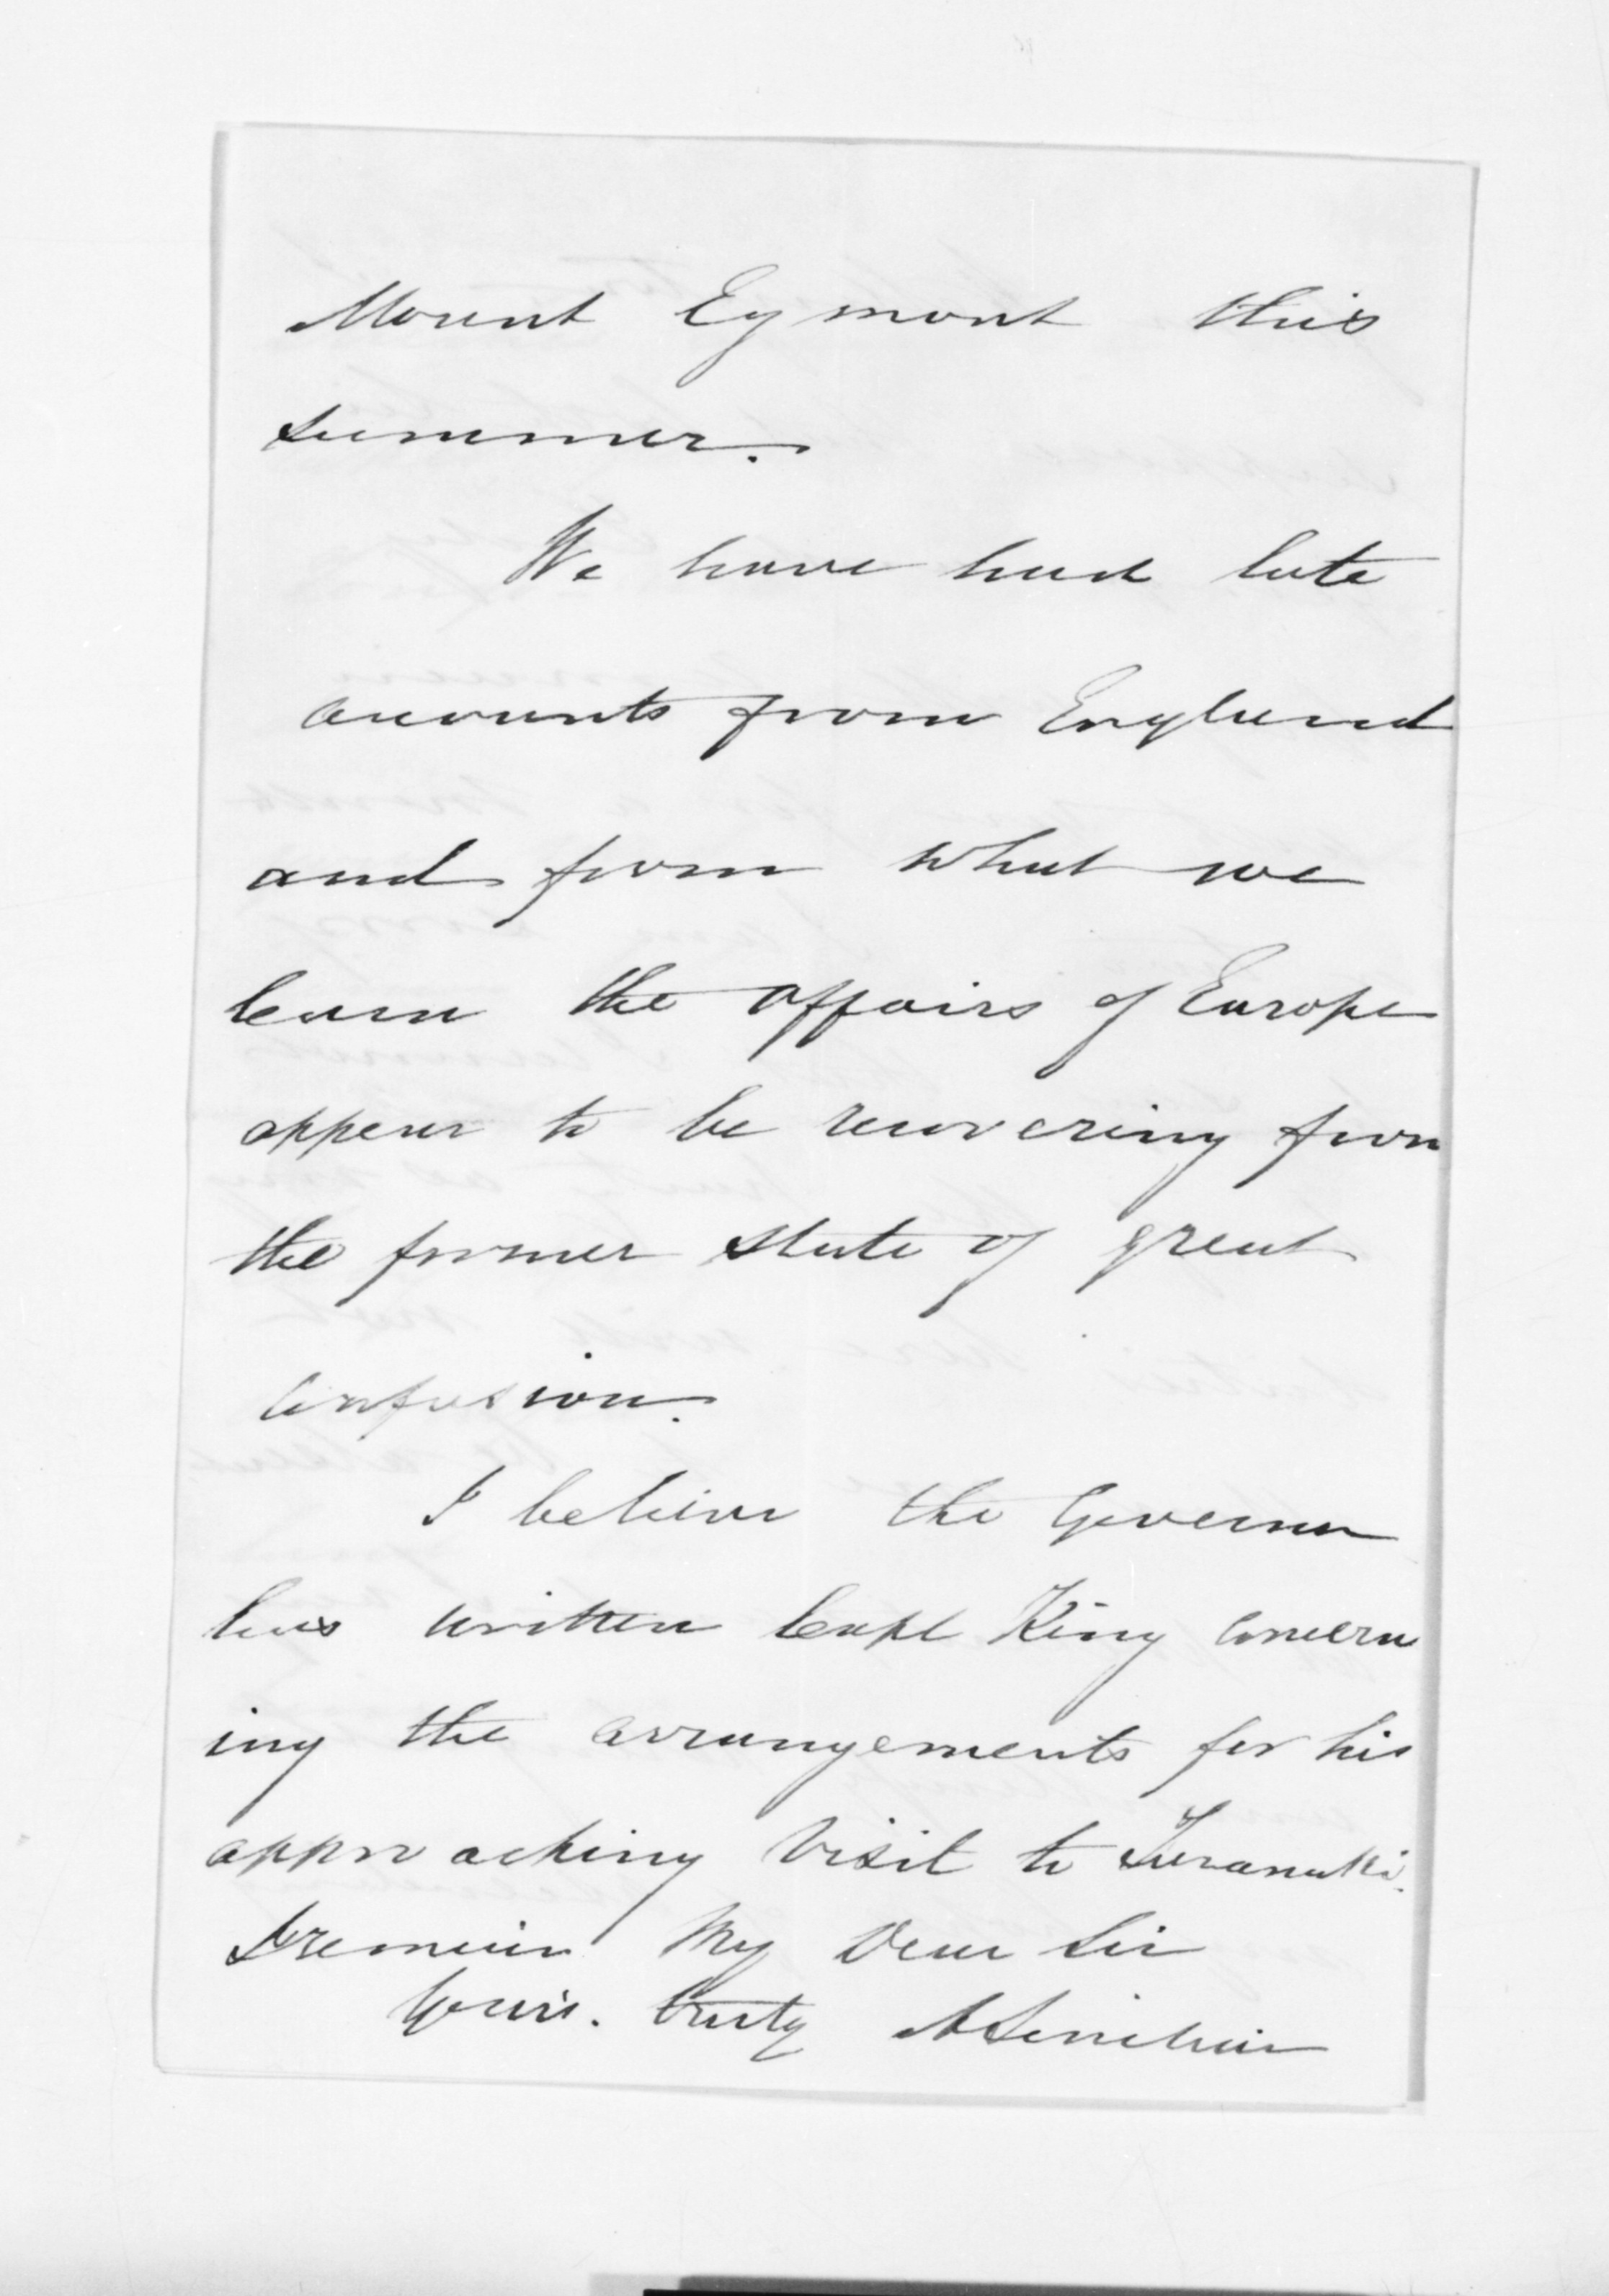 Mount Egmont this
summer.
We have had late
accounts from England
and from what we
learn the affairs of Europe
appear to be recovering from
the former state of great
confusion.
I believe the Governor
has written Capt King concern
ing the arrangements for his
approaching visit to Taranaki.
I remain My Dear Sir
Yours. truly A Sinclair